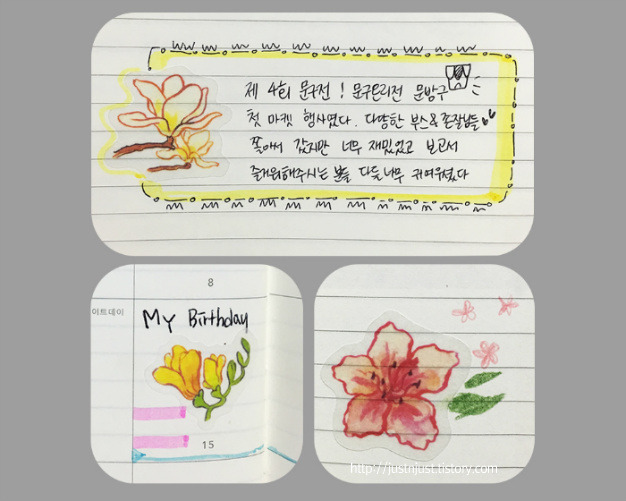 제 4회 문구전 ! 문구온리전 문방구
첫 마켓 행사였다. 다양한 부스 & 존잘님들
쫄아서 갔지만 너무 재밌었고 보고서
즐거워해주시는 분들 다들 너무 귀여우셨다
8
이트데이
My Birthday
15
http://justnjust.tistory.com